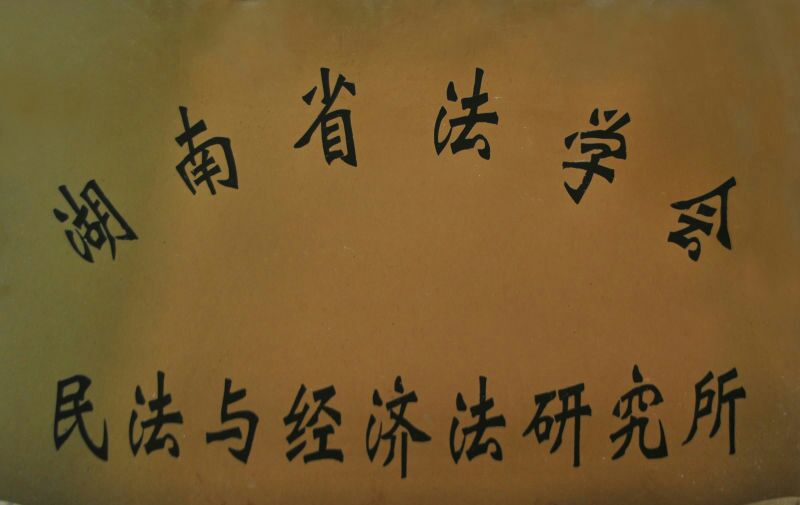 湖南省法学会
民法与经济法研究所